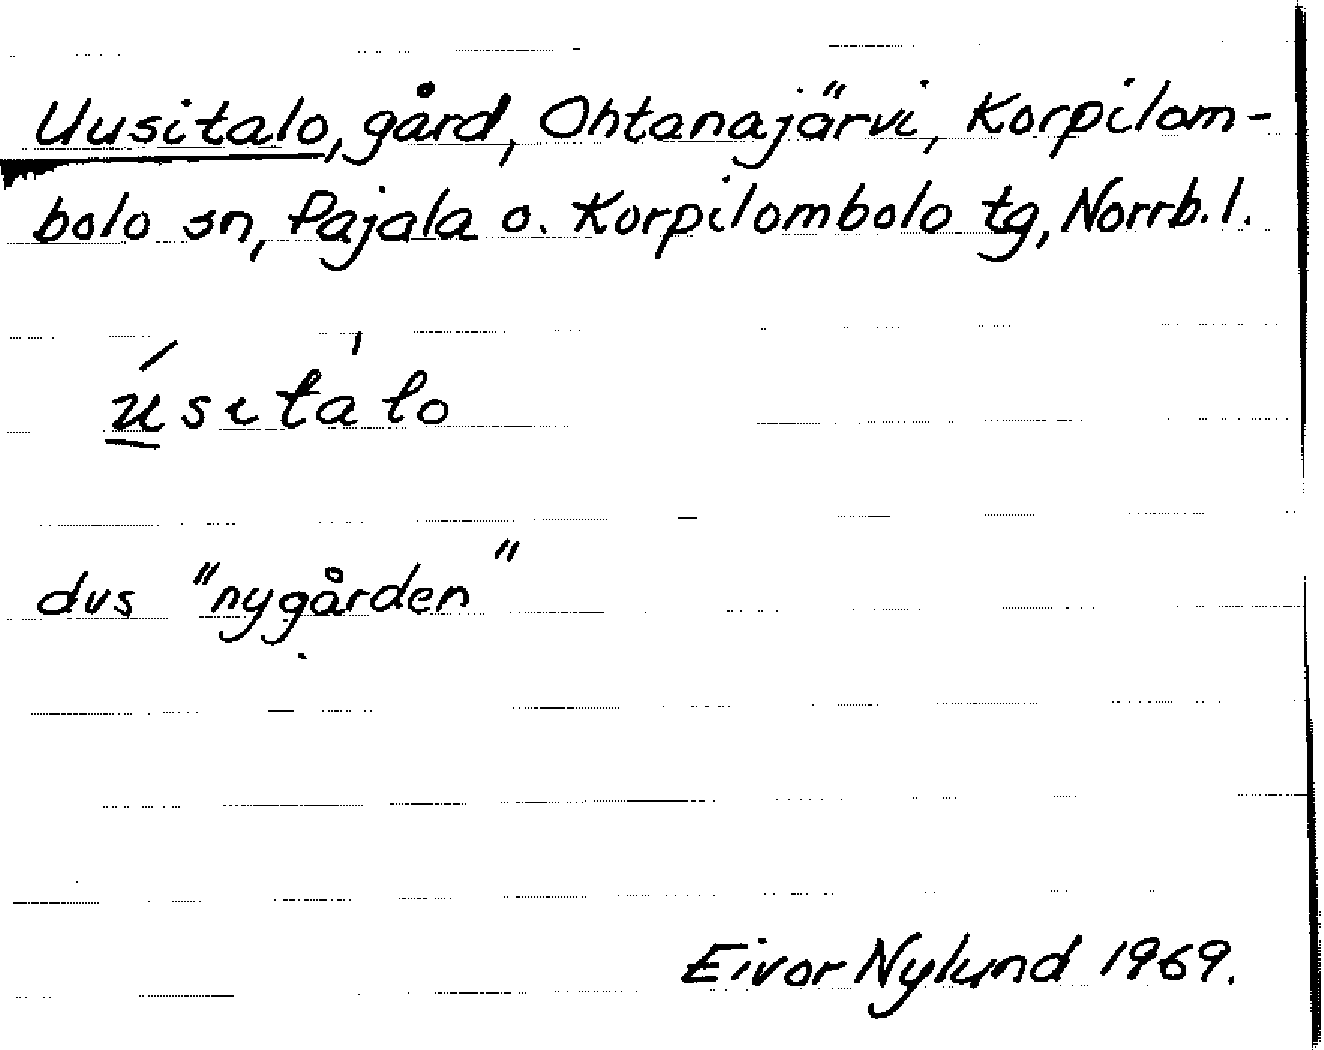 Uusitalo, gård, Ohtanajärvi, Korpilom-
bolo sn, Pajala o. Korpilombolo tg, Norrb. l.
ú̲sitàlo
dvs "nygården"
Eivor Nylund 1969.